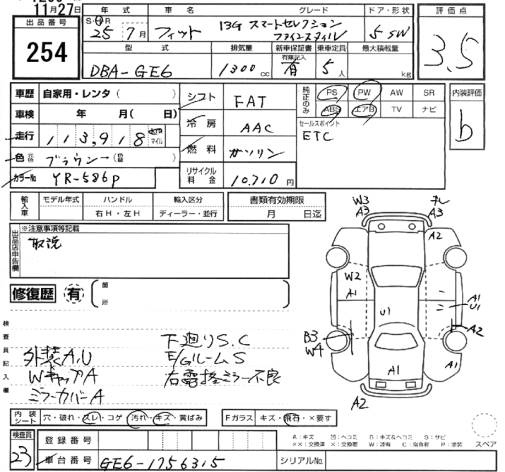 11月27日
出品番号 254
年式 車名 グレード ドア・形状 評価点
S・H 25 7月 フィット 13G スマートセレクション ファインスタイル 5 SW 3.5
型式 排気量 新車保証書 有限記入 乗車定員 最大積載量
DBA-GE6 1300cc 有 5人 kg
車歴 自家用・レンタ( ) シフト FAT 純正のみ PS PW AW SR 内装評価
車検 年 月( 日) 冷房 AAC ABS エアB TV ナビ b
走行 113,918 km マイル 燃料 ガソリン セールスポイント
色 ブラウン ETC
カラーNo YR-586P リサイクル料金 10,710円
輸入車 モデル年式 ハンドル 輸入区分 書類有効期限
右H・左H ディーラー・並行 月 日迄
出品店申告欄 ※注意事項等記載
取説
修復歴 有 箇所
検査員記入欄
下廻りS.C
外装A.U E/GルームS
WキャップA 右電格ミラー不良
ミラーカバーA
W3 A3
A3 A2
W2
A1 U1 A1 U1
B3 W4 A2
A1
A2 A2
内装シート 穴・破れ・スレ・コゲ 汚れ・キズ・黄ばみ Fガラス キズ・飛石・×要す
検査員 23 登録番号
車台番号 GE6-1756315 シリアルNo.
スペア